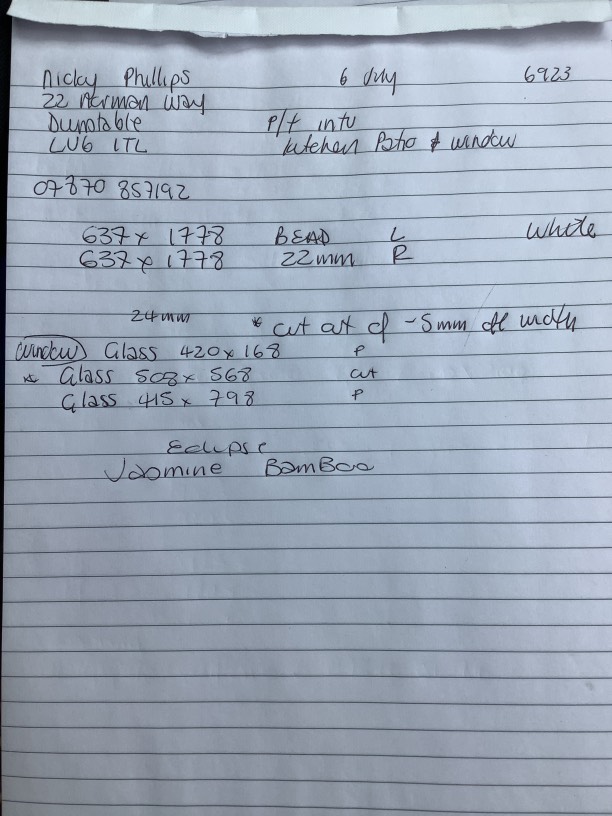 Nicky Phillips 6 July 6923
22 Norman Way
Dunstable p/t into
LU6 1TL kitchen Patio & window
07870 857192
637 x 1778 BEAD L White
637 x 1778 22mm R
24mm * cut out of -5mm off width
(window) Glass 420 x 168 P
* Glass 508 x 568 cut
Glass 415 x 798 P
Eclipse
Jasmine Bamboo